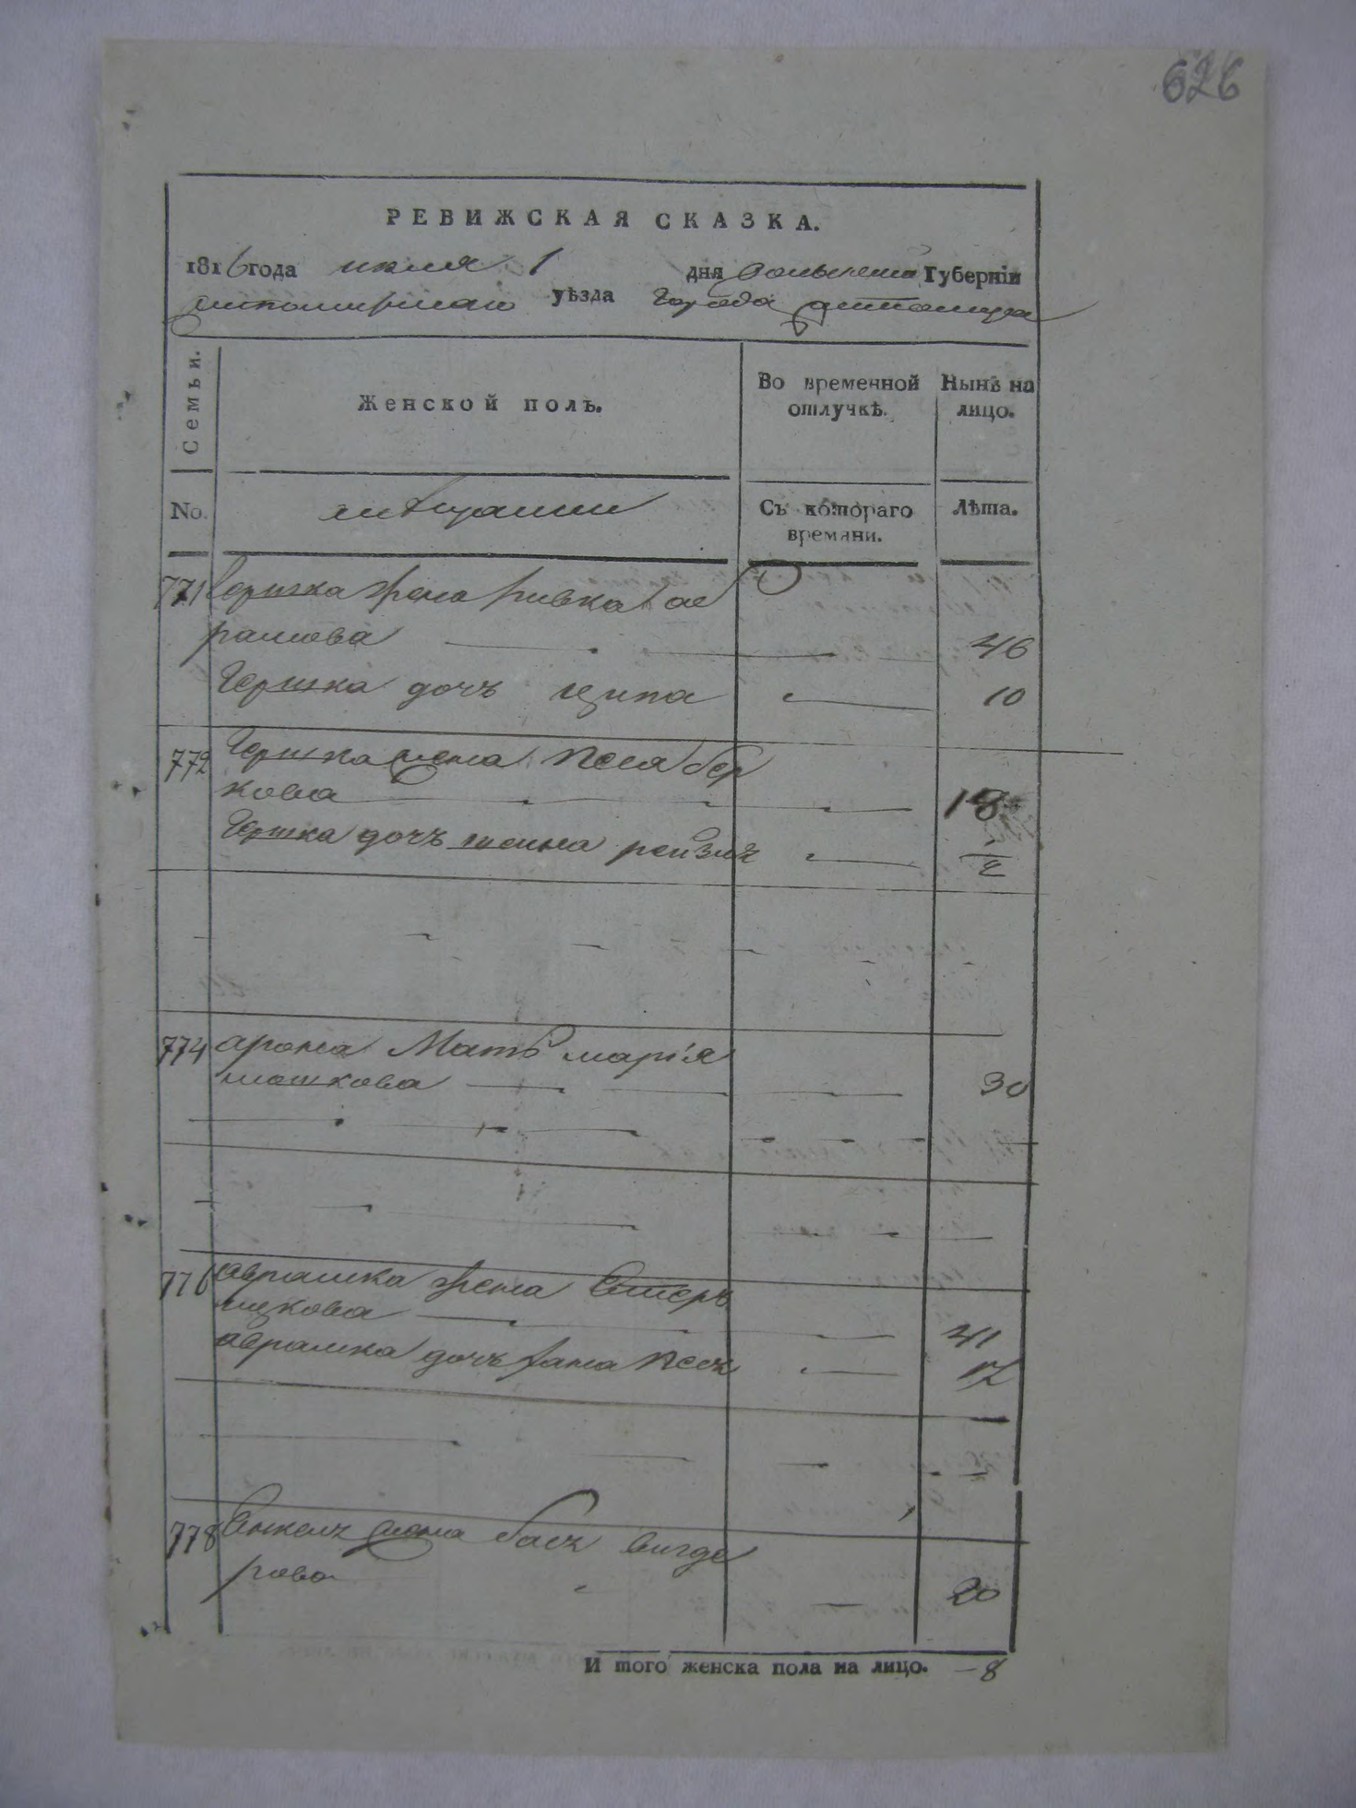 626
РЕВИЖСКАЯ СКАЗКА.
1816 года июля 1 дня волынской Губерніи
житомирскаго уѣзда Города житомира
Семьи.
Женской полъ.
Во временной отлучкѣ.
Нынѣ на лицо.
No.
мещании
Съ котораго времяни.
Лѣта.
771 Гершка жена ривка ав
рамова 46
Гершка дочь ципа 10
772 Гершка жена песя бер
кова 18
Гершка дочъ рейзя 1/2
774 арона Мать марія
мошкова 30
776 аврамка жена Естеръ
ицкова 41
аврамка дочъ хана песя 12
778 Янкеля жена бася вигдо
рова 20
И того женска пола на лицо. – 8